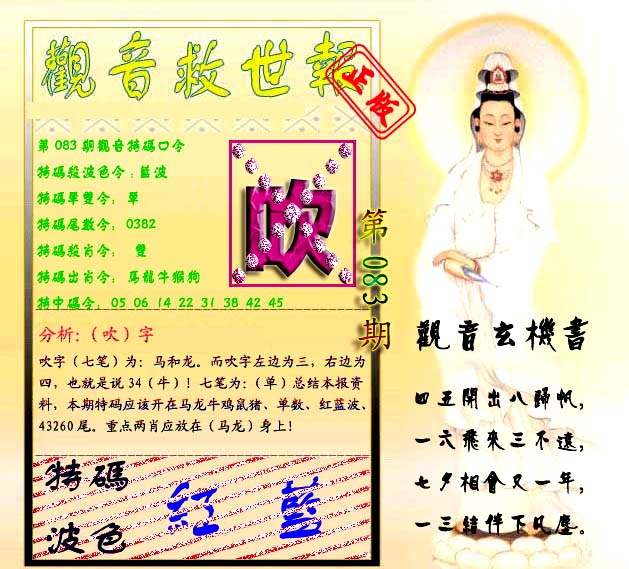 觀音救世報
正版
第083期觀音特碼口令
特碼殺波色令：藍波
特碼單雙令：單
特碼尾數令：0382
特碼殺肖令：雙
特碼出肖令：馬龍牛猴狗
特中碼令：05 06 14 22 31 38 42 45
吹
第083期
分析:（吹）字
吹字（七笔）为：马和龙。而吹字左边为三，右边为
四，也就是说34（牛）！七笔为：（单）总结本报资
料，本期特码应该开在马龙牛鸡鼠猪、单数、红蓝波、
43260尾。重点两肖应放在（马龙）身上！
特碼
波色
紅 藍
觀音玄機書
四五開出八歸帆，
一六飛來三不遠，
七夕相會又一年，
一三結伴下風塵。